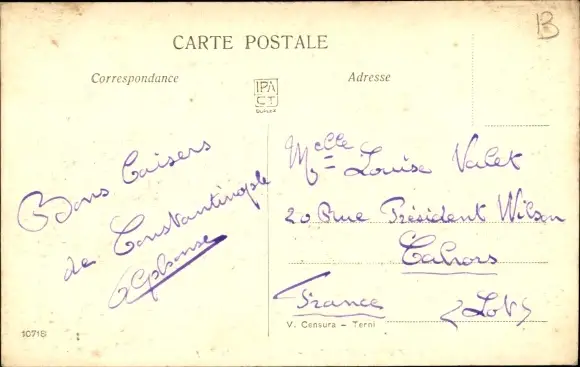 B
CARTE POSTALE
Correspondance
Adresse
IPA
CT
Bons Baisers
de Constantinople
Alphonse
Melle Louise Valet
20 Rue Président Wilson
Cahors
France
(Lot)
V. Censura – Terni
10718